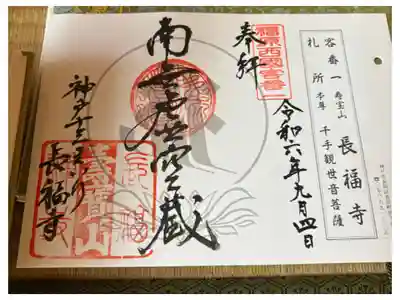 客番一 寿宝山 長福寺
札所 本尊 千手観世音菩薩
福原西国客番
奉拝
令和六年九月四日
南無虚空蔵
神戸十三まいり
長福寺